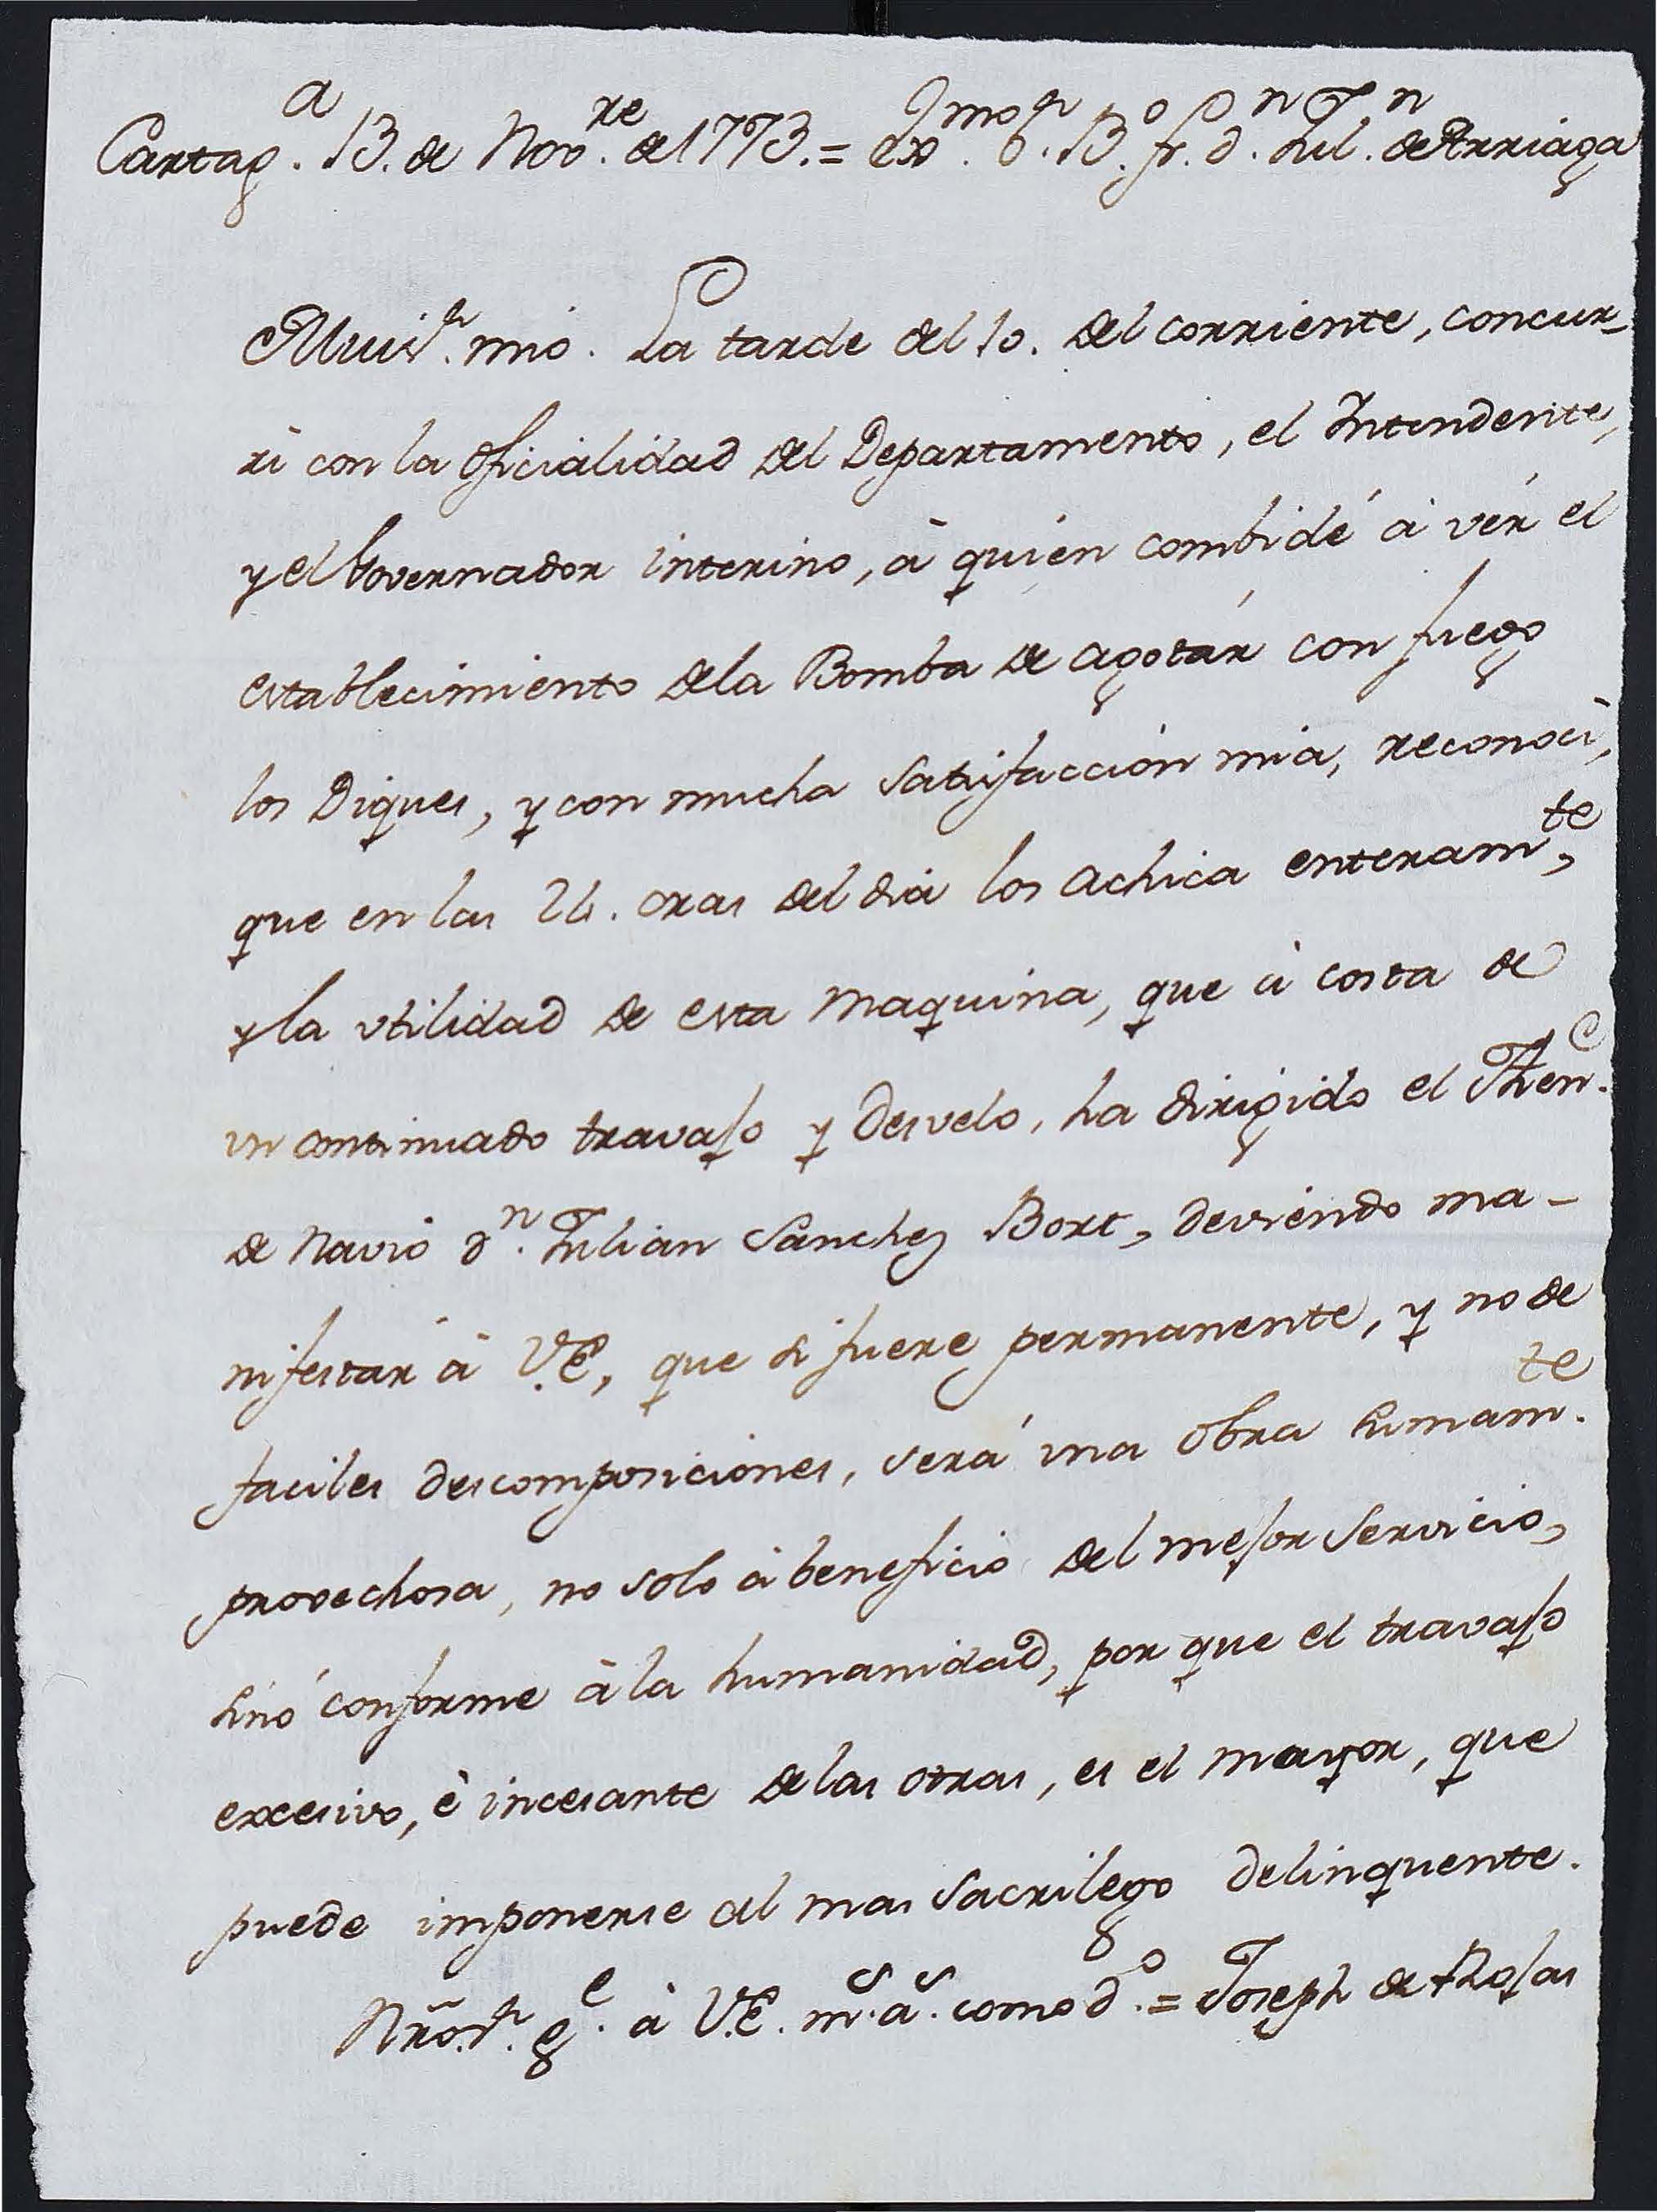 Cartag.ª 13. de Nov.re de 1773. = Ex.mo S.r B.o fr. D.n Jul.n de Arriaga
Mui S.r mio. La tarde del 10. del corriente, concur-
rì con la oficialidad del Departamento, el Intendente,
y el Governador interino, à quien combidé à vér el
establecimiento dela Bomba de agotár con fuego
los Diques, y con mucha satisfaccion mia, reconocì,
que en las 24. oras del dia los achica enteram.te,
y la vtilidad de esta maquina, que à costa de
vn continuado travajo y desvelo, ha dirigido el Then.e
de Navio d.n Julian Sanchez Bort, deviendo ma-
nifestar à V.E, que si fuere permanente, y no de
faciles descomposiciones, será una obra sumam.te
provechosa, no solo à beneficio del mejor servicio,
sinó conforme à la humanidad, por que el travajo
excesivo, è incesante delas otras, es el mayor, que
puede imponerse al mas sacrilego delinquente.
Nrõ. S.r g.e à V.E. m.s a.s como d.o = Joseph de Rojas